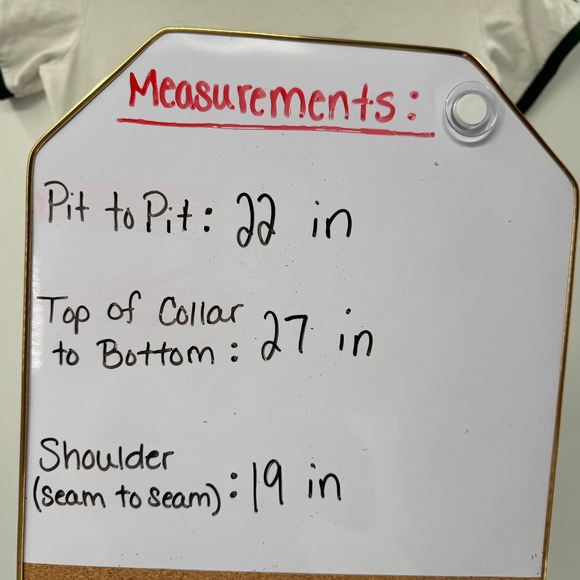 Measurements:
Pit to Pit: 22 in
Top of Collar
to Bottom: 27 in
Shoulder
(seam to seam): 19 in